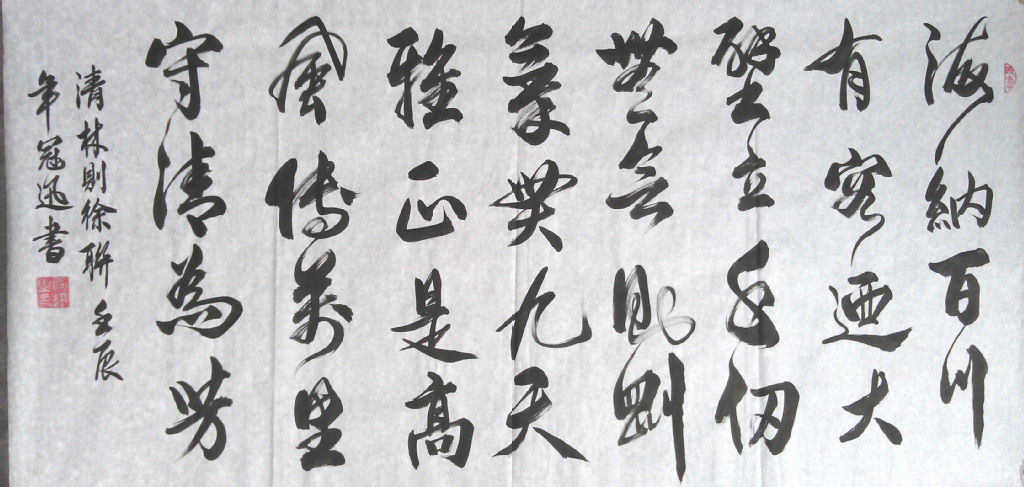 海納百川
有容迺大
壁立千仞
無則剛
九天
雅正是高
風傳萬里
守清為芳
清林則徐聯壬辰
年冠迅書